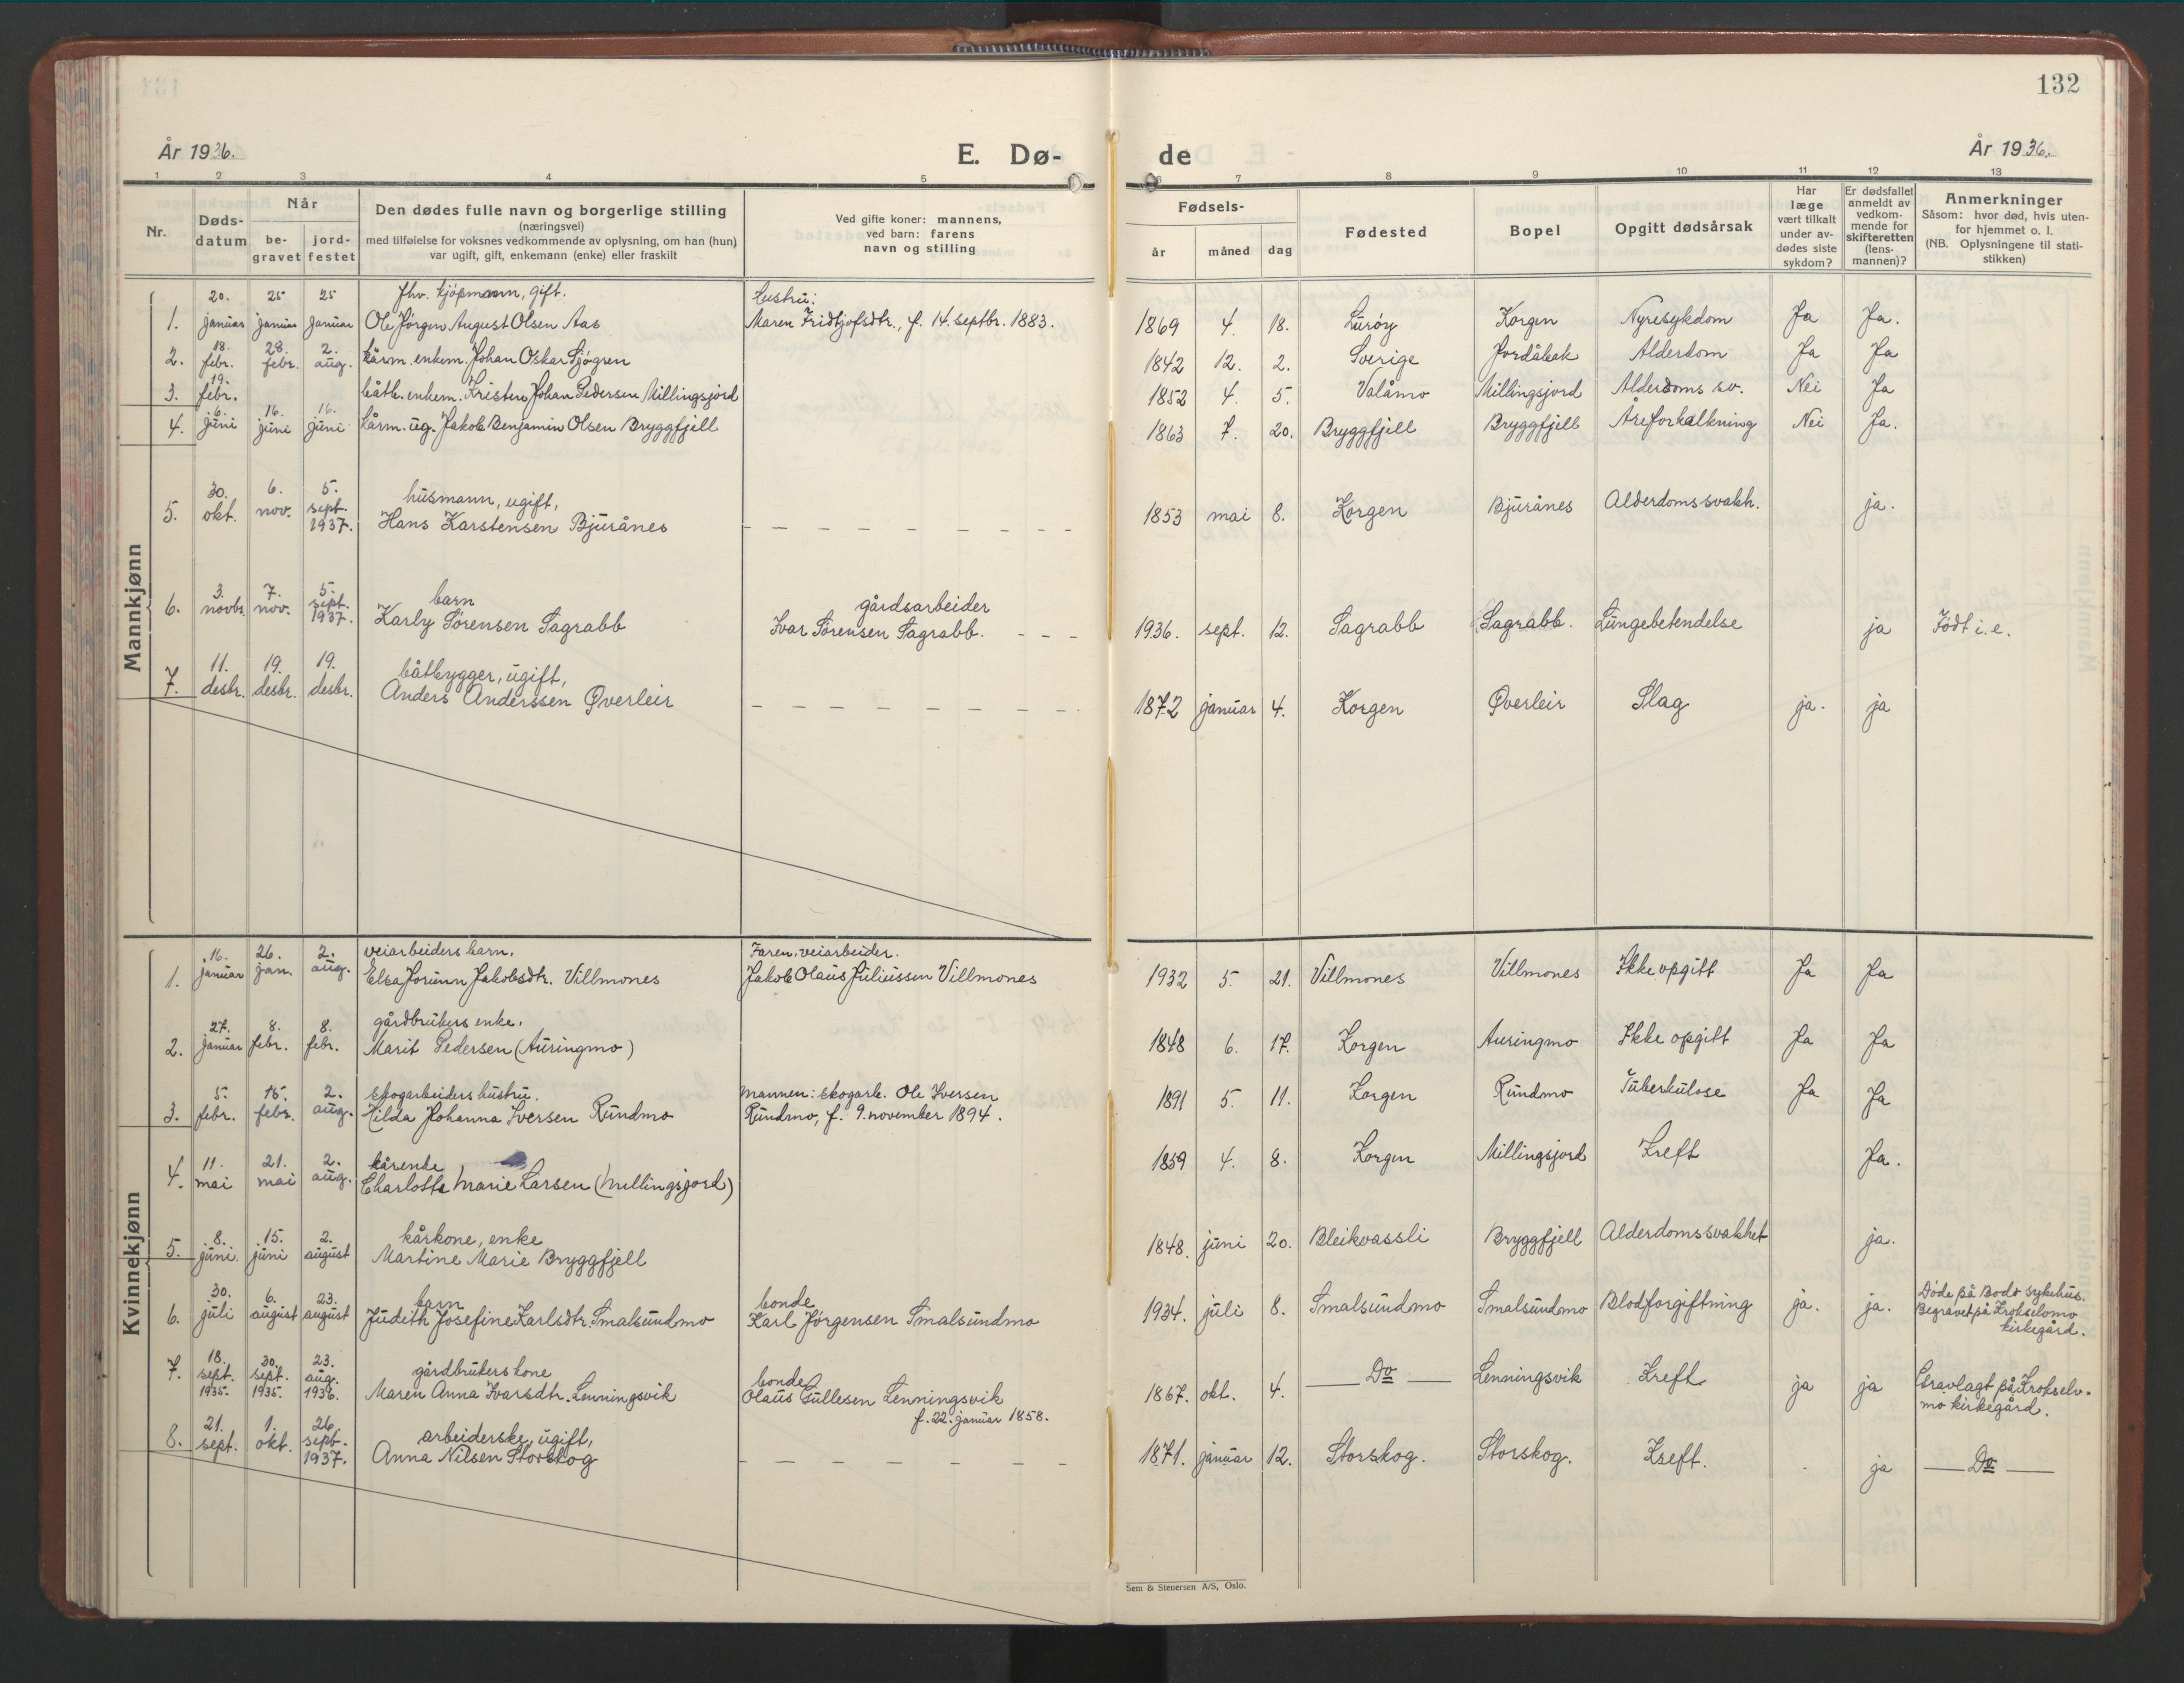 132
År 1936.
E. Dø-
de
År 1936.
1 2 3 4 5
6 7 8 9 10 11 12 13
Nr.
Døds-
datum
Når
be-
gravet
jord-
festet
Den dødes fulle navn og borgerlige stilling
(næringsvei)
med tilføielse for voksnes vedkommende av oplysning, om han (hun)
var ugift, gift, enkemann (enke) eller fraskilt
Ved gifte koner: mannens,
ved barn: farens
navn og stilling
Fødsels-
år måned dag
Fødested
Bopel
Opgitt dødsårsak
Har
læge
vært tilkalt
under av-
dødes siste
sykdom?
Er dødsfallet
anmeldt av
vedkom-
mende for
skifteretten
(lens-
mannen)?
Anmerkninger
Såsom: hvor død, hvis uten-
for hjemmet o. l.
(NB. Oplysningene til stati-
stikken)
Mannkjønn
20. 25 25 fhv. kjøpmann, gift. Hustru:
1. januar januar januar Ole Jørgen August Olsen Aas Maren Fridtjofsdtr., f. 14. septbr. 1883. 1869 4. 18. Lurøy Korgen Nyresykdom Ja Ja.
18. 28. 2.
2. febr. febr. aug. kårm. enkem. Johan Oskar Sjøgren 1842 12. 2. Sverige Jordåbak Alderdom Ja Ja
19.
3. febr. båtb. enkem. Kristen Johan Pedersen Millingsjord 1852 4. 5. Valåmo Millingsjord Alderdoms sv. Nei Ja
6. 16. 16.
4. juni juni juni kårm. ug. Jakob Benjamin Olsen Bryggfjell 1863 7. 20. Bryggfjell Bryggfjell Åreforkalkning Nei Ja.
30. 6. 5. husmann, ugift,
5. okt. nov. sept. 1937. Hans Karstensen Bjurånes 1853 mai 8. Korgen Bjurånes Alderdomssvakh. ja.
3. 7. 5. barn gårdsarbeider
6. novbr. nov. sept. 1937. Karly Sørensen Sagrabb Ivar Sørensen Sagrabb. 1936. sept. 12. Sagrabb Sagrabb. Lungebetendelse ja Født i.e.
11. 19. 19. båtbygger, ugift,
7. desbr. desbr. desbr. Anders Anderssen Øverleir 1872 januar 4. Korgen Øverleir Slag ja. ja
Kvinnekjønn
16. 26. 2. veiarbeiders barn. Faren: veiarbeider.
1. januar jan. aug. Elsa Jorunn Jakobsdtr. Villmones Jakob Olaus Juliussen Villmones 1932 5. 21. Villmones Villmones Ikke opgitt Ja Ja
27. 8. 8. gårdbrukers enke.
2. januar febr. febr. Marit Pedersen (Auringmo) 1848 6. 17. Korgen Auringmo Ikke opgitt Ja Ja
5. 15. 2. skogarbeiders hustru. Mannen: skogarb. Ole Iversen
3. febr. febr. aug. Hilda Johanna Iversen Rundmo Rundmo, f. 9. november 1894. 1891 5. 11. Korgen Rundmo Tuberkulose Ja Ja
11. 21. 2. kårenke
4. mai mai aug. Charlotte Marie Larsen (Millingsjord) 1859 4. 8. Korgen Millingsjord Kreft Ja.
8. 15. 2. kårkone, enke
5. juni juni august Martine Marie Bryggfjell 1848. juni 20. Bleikvassli Bryggfjell Alderdomssvakhet ja.
30. 6. 23. barn bonde Døde på Bodø sykehus.
6. juli august august Judith Josefine Karlsdtr. Smalsundmo Karl Jørgensen Smalsundmo 1934. juli 8. Smalsundmo Smalsundmo Blodforgiftning ja. ja. Begravet på Krokselvmo
kirkegård.
18. 30. 23. gårdbrukers kone bonde
7. sept. 1935. sept. 1935. aug. 1936. Maren Anna Ivarsdtr. Lenningsvik Olaus Gullesen Lenningsvik 1867. okt. 4. Do Lenningsvik Kreft ja ja Gravlagt på Krokselv-
f. 22. januar 1858. mo kirkegård.
21. 1. 26. arbeiderske, ugift,
8. sept. okt. sept. 1937. Anna Nilsen Storskog 1871. januar 12. Storskog. Storskog. Kreft. ja Do
Sem & Stenersen A/S, Oslo.